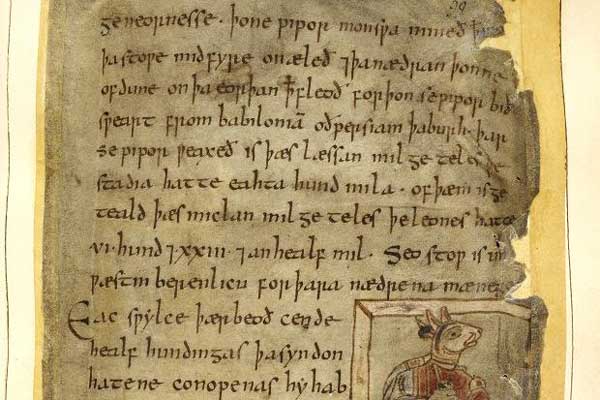 geneornesse · þone pipor mon sƿa nimeð
þa stoƿe mid fyre onæleð ⁊ þa nædran þonne
of dune on þa eorþan ꝥ fleoð forþon se pipor bið
sƿeart from babiloniā oð persiam þa burh · þær
se pipor ƿeaxeð is þæs læssan mil ge teles
stadia hatte eahta hund mila · of þæm is ge
teald þæs miclan mil ge teles þe leones hatte
vi · hund ⁊ xxiii · ⁊ an healf mil · Seo stoƿ is
ƿæstm berenlicu for þara nædrena
Eac sƿylce þær beoð cende
healf hundingas þa syndon
hatene conopenas hy hab